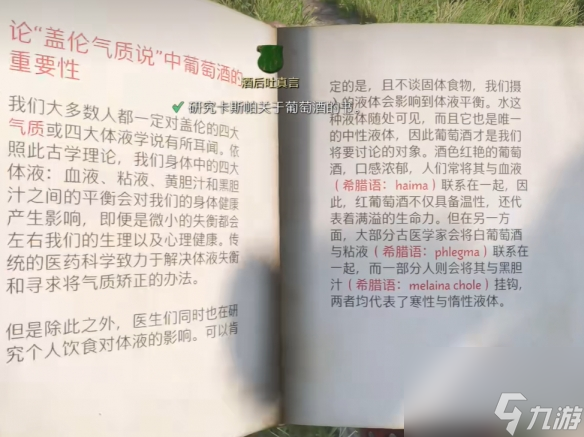 论“盖伦气质说”中葡萄酒的
重要性
我们大多数人都一定对盖伦的四大
气质或四大体液学说有所耳闻。依
照此古学理论，我们身体中的四大
体液：血液、粘液、黄胆汁和黑胆
汁之间的平衡会对我们的身体健康
产生影响，即便是微小的失衡都会
左右我们的生理以及心理健康。传
统的医药科学致力于解决体液失衡
和寻求将气质矫正的办法。
但是除此之外，医生们同时也在研
究个人饮食对体液的影响。可以肯
酒后吐真言
✓ 研究卡斯帕关于葡萄酒的书。
定的是，且不谈固体食物，我们摄
入的液体会影响到体液平衡。水这
种液体随处可见，而且它也是唯一
的中性液体，因此葡萄酒才是我们
将要讨论的对象。酒色红艳的葡萄
酒，口感浓郁，人们常将其与血液
（希腊语：haima）联系在一起，因
此，红葡萄酒不仅具备温性，还代
表着满溢的生命力。但在另一方
面，大部分古医学家会将白葡萄酒
与粘液（希腊语：phlegma）联系在
一起，而一部分人则会将其与黑胆
汁（希腊语：melaina chole）挂钩，
两者均代表了寒性与惰性液体。
九游